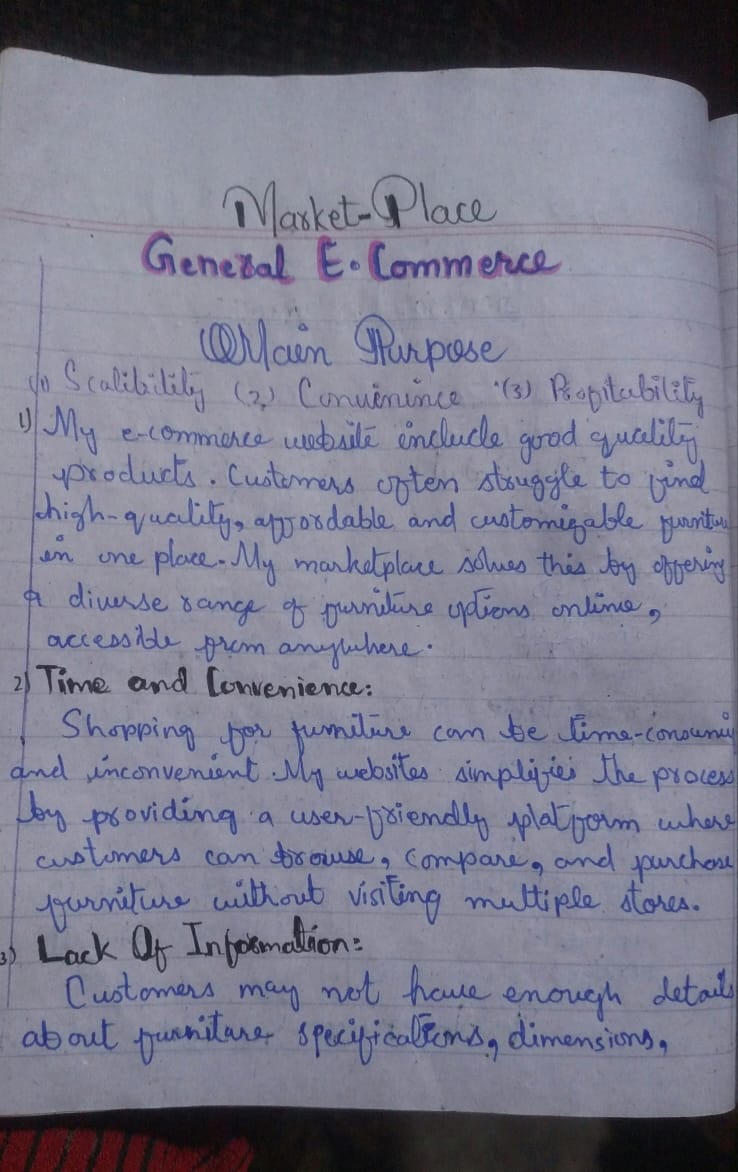 Market-Place
General E-Commerce
Main Purpose
(1) Scalibility (2) Convinince (3) Profitability
1) My e-commerce website include good quality
products. Customers often struggle to find
high-quality, affordable and customizable furniture
in one place. My marketplace solves this by offering
a diverse range of furniture options online,
accessible from anywhere.
2) Time and Convenience:
Shopping for furniture can be time-consumi
and inconvenient. My websites simplifies the process
by providing a user-friendly platform where
customers can browse, compare, and purchase
furniture without visiting multiple stores.
3) Lack Of Information:
Customers may not have enough details
about furniture specifications, dimensions,